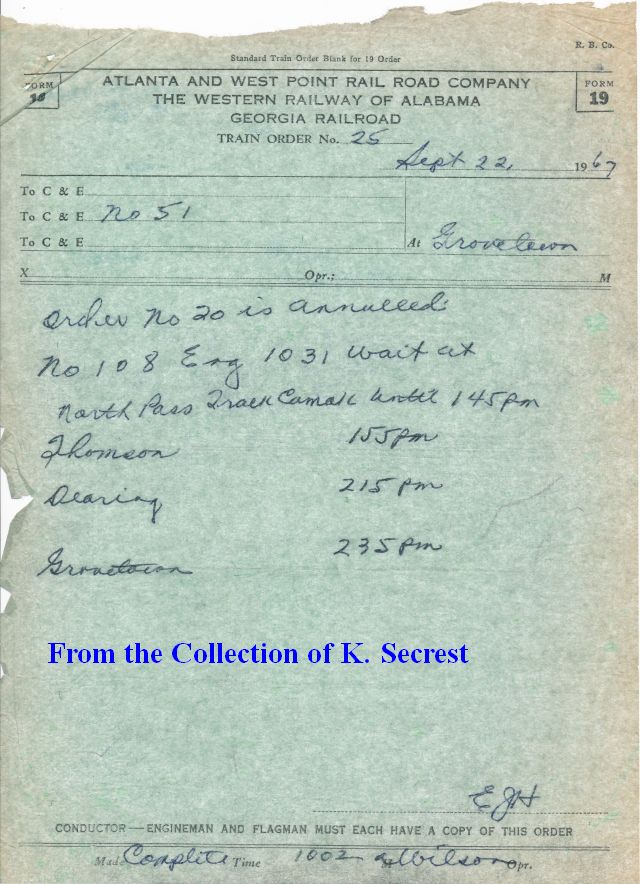 R. B. Co.
Standard Train Order Blank for 19 Order
FORM 19
ATLANTA AND WEST POINT RAIL ROAD COMPANY
THE WESTERN RAILWAY OF ALABAMA
GEORGIA RAILROAD
FORM 19
TRAIN ORDER No. 25
Sept 22, 1967
To C & E
To C & E No 51
To C & E
At Grovetown
X Opr.; M
Order No 20 is annulled
No 108 Eng 1031 wait at
North Pass Track Camak until 145pm
Thomson 155pm
Dearing 215pm
Grovetown 235pm
From the Collection of K. Secrest
EJH
CONDUCTOR — ENGINEMAN AND FLAGMAN MUST EACH HAVE A COPY OF THIS ORDER
Made Complete Time 1002 a M Wilson Opr.